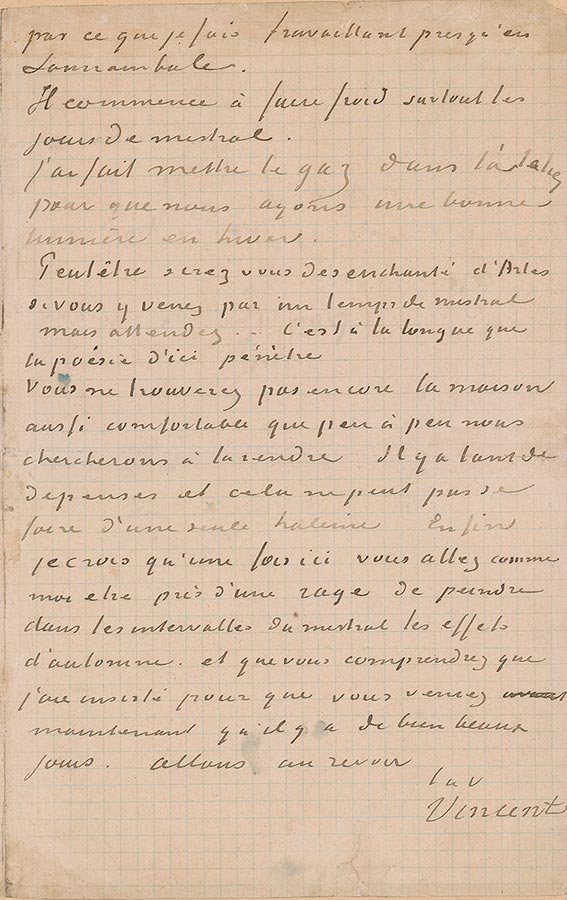 par ce que je fais travaillant presqu'en
Somnambule.
Il commence à faire froid surtout les
jours de mistral.
J'ai fait mettre le gaz dans l'atelier
pour que nous ayons une bonne
lumière en hiver.
Peutêtre serez vous desenchanté d'Arles
si vous y venez par un temps de mistral
mais attendez... C'est à la longue que
la poésie d'ici pénètre
Vous ne trouverez pas encore la maison
aussi comfortable que peu à peu nous
chercherons à la rendre Il y a tant de
depenses et cela ne peut pas se
faire d'une seule haleine Enfin
je crois qu'une fois ici vous allez comme
moi etre pris d'une rage de peindre
dans les intervalles du mistral les effets
d'automne. et que vous comprendrez que
j'aie insisté pour que vous veniez
maintenant qu'il y a de bien beaux
jours. allons au revoir
t. à v
Vincent